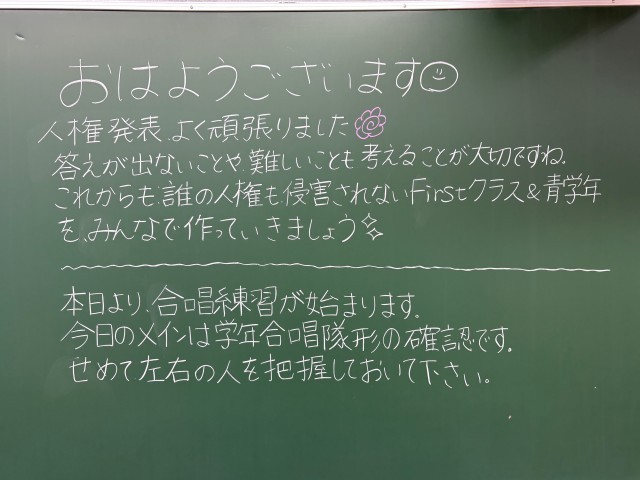 おはようございます
人権発表、よく頑張りました
答えが出ないことや、難しいことも考えることが大切ですね。
これからも、誰の人権も侵害されないFirstクラス&青学年
を、みんなで作っていきましょう
本日より、合唱練習が始まります。
今日のメインは学年合唱隊形の確認です。
せめて左右の人を把握しておいて下さい。